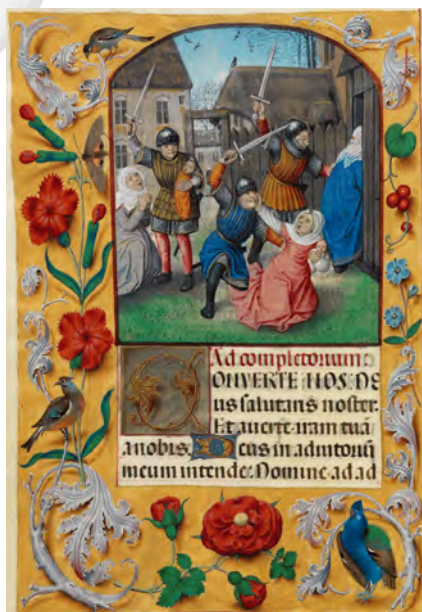 Ad completorium:
CONVERTE NOS DE
us salutaris noster.
Et averte iram tuā
a nobis. Deus in adiutoriū
meum intende: Domine ad ad